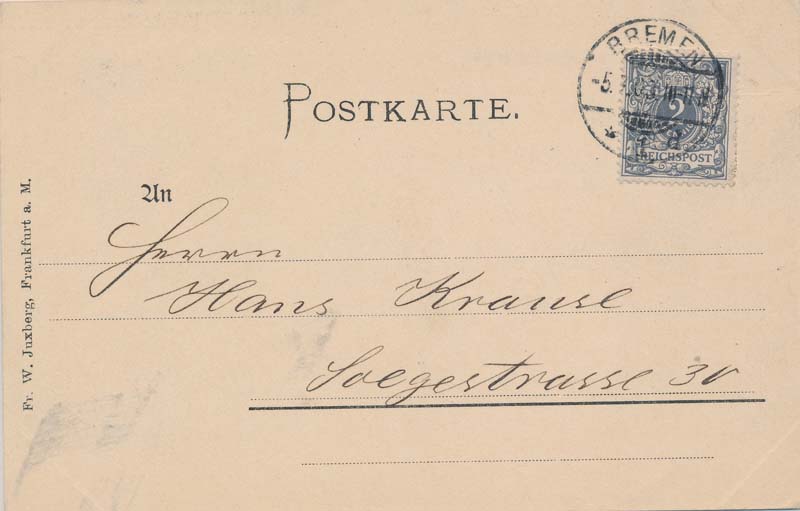 BREMEN
2
REICHSPOST
POSTKARTE.
An
Herrn
Hans Krause
Soegestrasse 30
Fr. W. Juxberg, Frankfurt a. M.